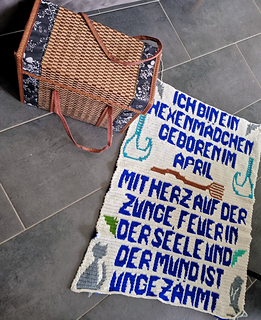 ICH BIN EIN
HEXENMÄDCHEN
GEBOREN IM
APRIL
MIT HERZ AUF DER
ZUNGE, FEUER IN
DER SEELE UND
DER MUND IST
UNGEZÄHMT